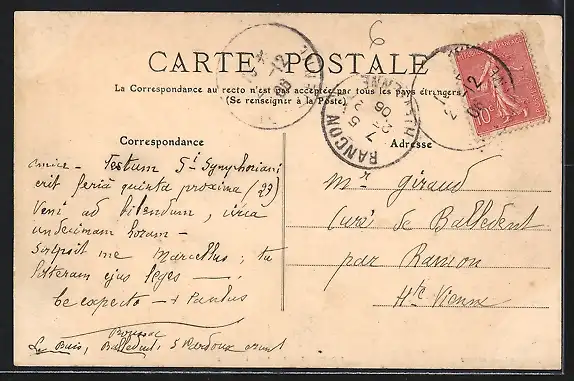 CARTE POSTALE
La Correspondance au recto n'est pas acceptée par tous les pays étrangers
(Se renseigner à la Poste).
6
RANCON
7 5
06
HTE VIENNE
12
06
12
06
10
Correspondance
Adresse
amice - Festum Sti Symphoriani
erit feria quinta proxima (23)
Veni ad bibendum, circa
undecimam horam -
Scripsit me Marcellus; tu
litteram ejus leges —
te expecto — + Paulus
Boussac
Le Buis, Balledent, S Pardoux erunt
Mr Giraud
Curé de Balledent
par Rancon
Hte Vienne